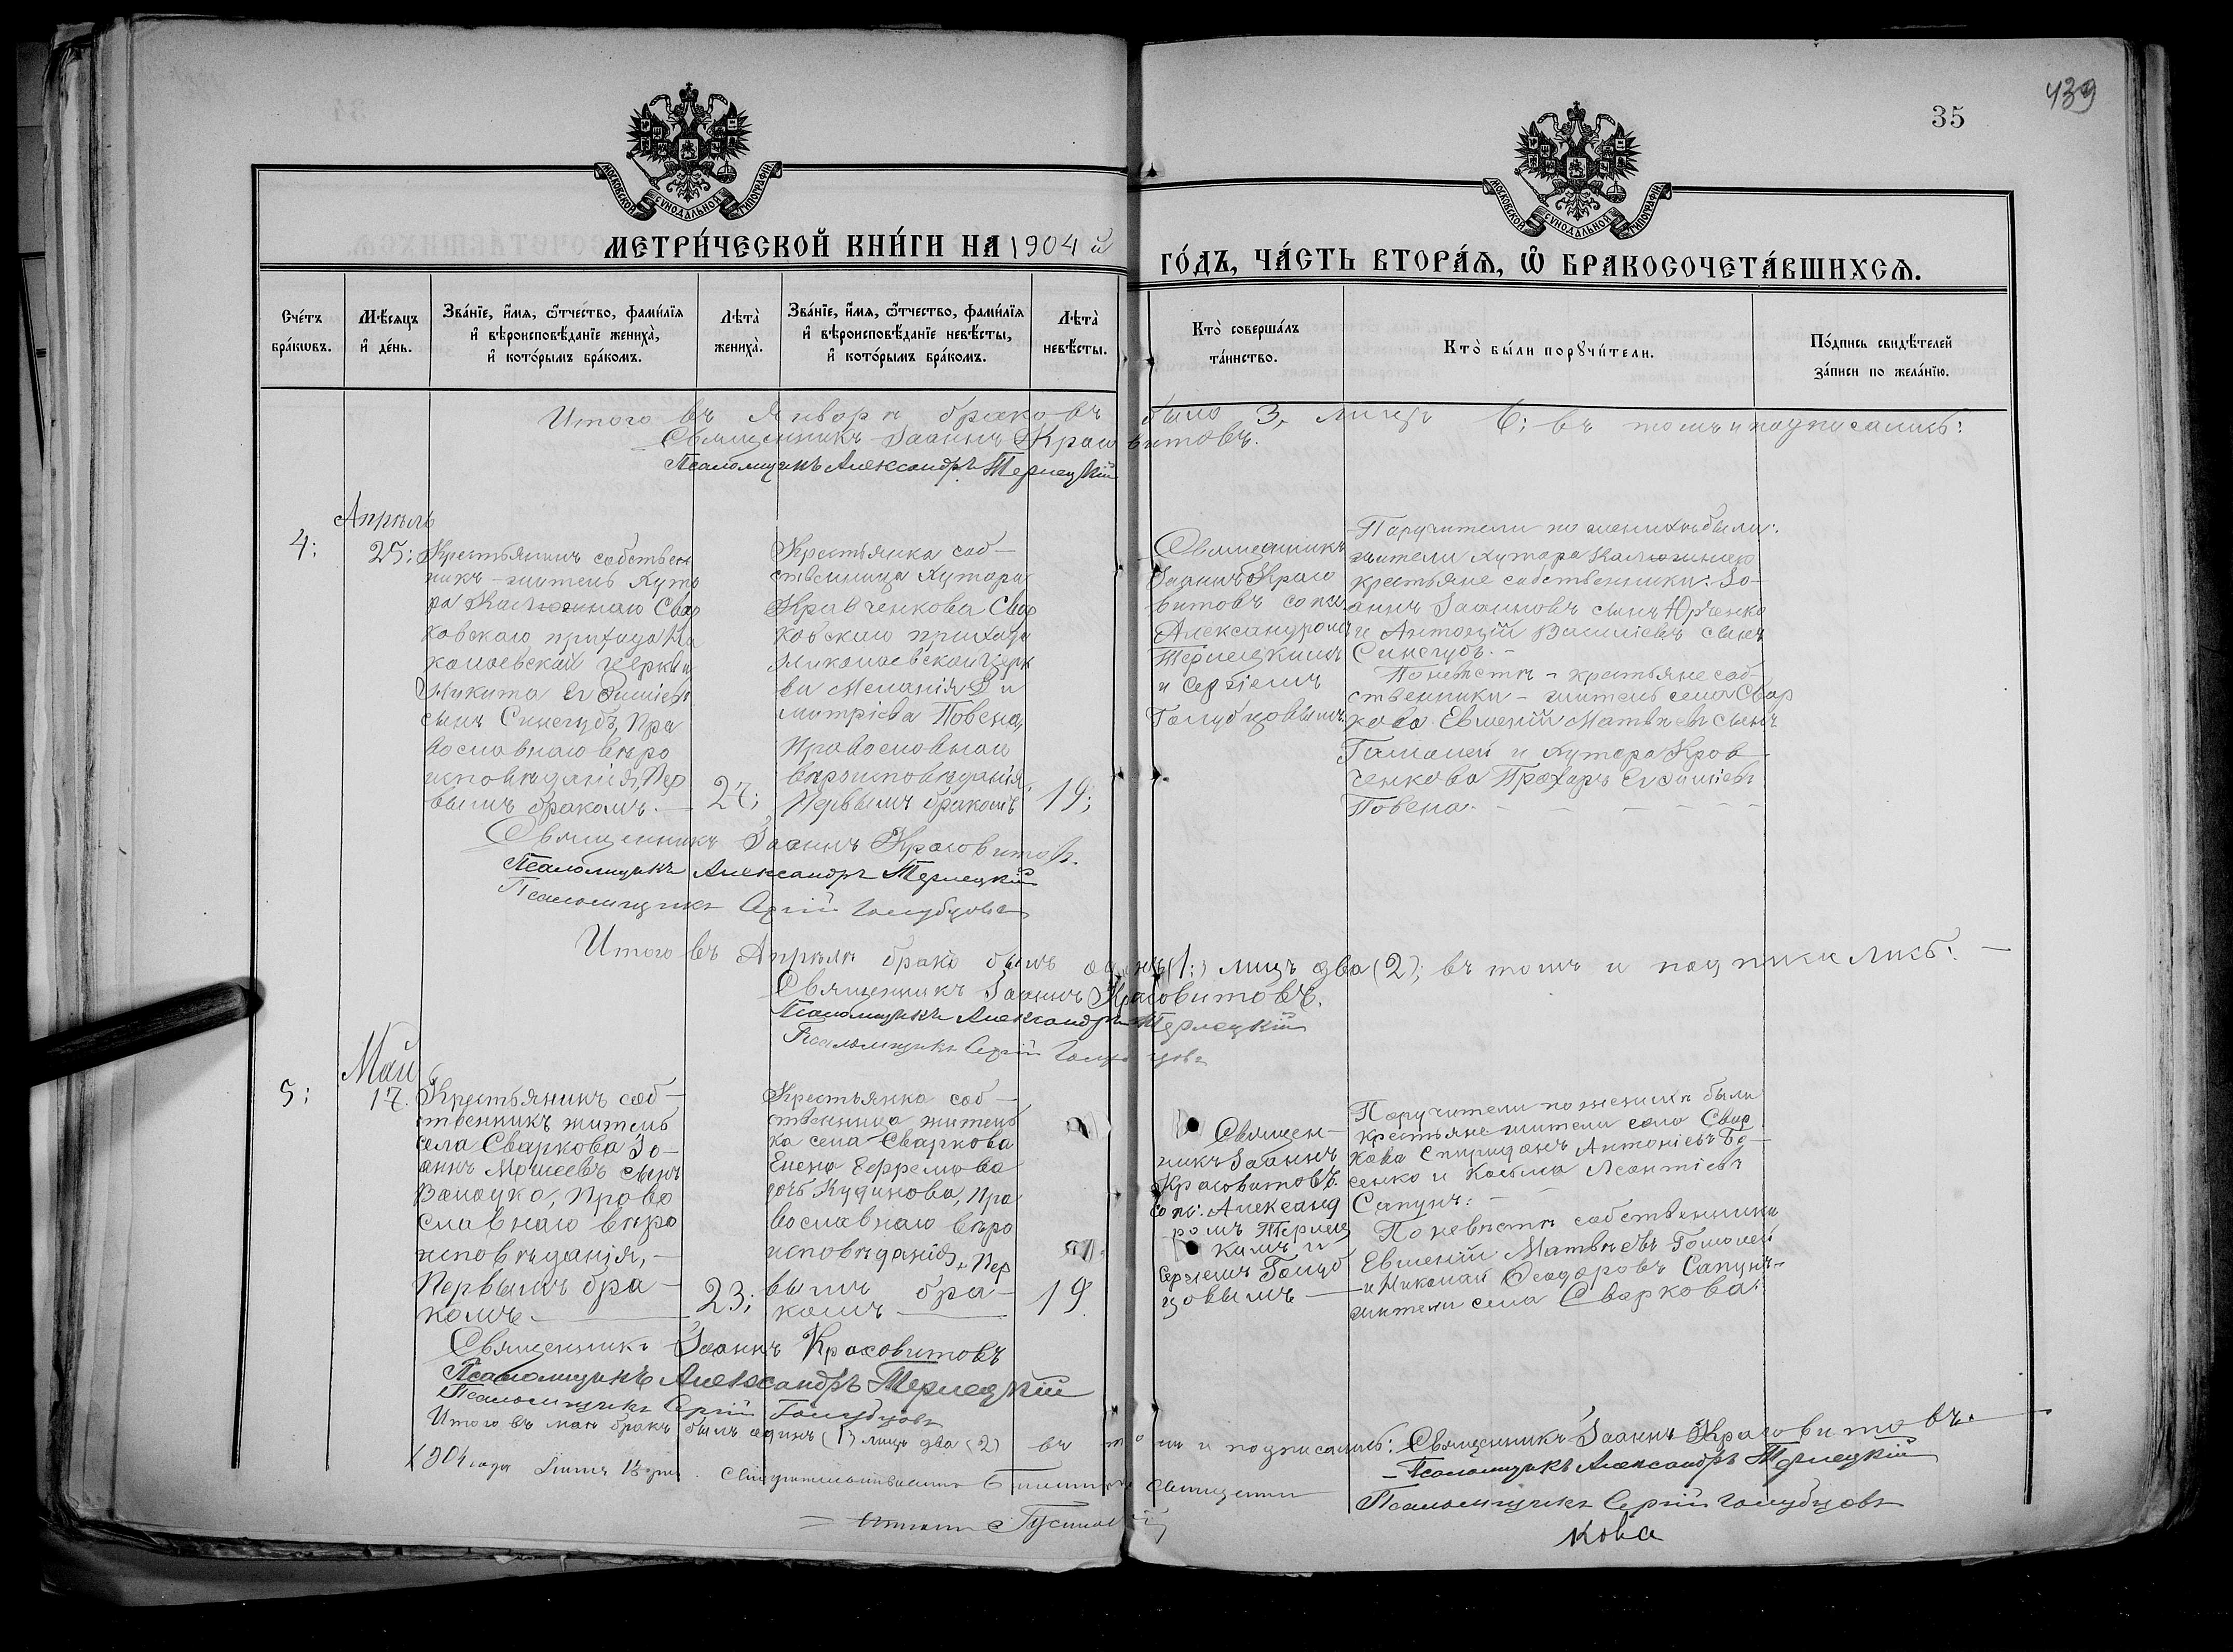 439
35
МОСКОВСКОЙ СѴНОДАЛЬНОЙ ТИПОГРАФІИ
МОСКОВСКОЙ СѴНОДАЛЬНОЙ ТИПОГРАФІИ
МЕТРИ́ЧЕСКОЙ КНИ́ГИ НА 1904 й
ГО́ДЪ, ЧА́СТЬ ВТОРА́Ѧ, Ѡ҆ БРАКОСОЧЕТА́ВШИХСѦ.
Сче́тъ
бра́кѡвъ.
Мѣ́сяцъ
и҆ де́нь.
Зва́нїе, и҆́мѧ, ѻ҆́тчество, фами́лїѧ
и҆ вѣроисповѣ́данїе жениха̀,
и҆ кото́рымъ бра́комъ.
Лѣта̀
жениха̀.
Зва́нїе, и҆́мѧ, ѻ҆́тчество, фами́лїѧ
и҆ вѣроисповѣ́данїе невѣ́сты,
и҆ кото́рымъ бра́комъ.
Лѣта̀
невѣ́сты.
Кто̀ соверша́лъ
та́инство.
Кто̀ бы́ли порꙋчи́тели.
По́дпись свидѣ́телей
за́писи по жела́нїю.
Итого въ Январѣ браковъ было 3, лицъ 6; въ томъ и подписались:
Священникъ Іоаннъ Красовитовъ.
Псаломщикъ Александръ Терлецкій
Апрѣль
4:
25:
Крестьянинъ собствен
никъ - житель хуто
ра Калюжнаго Свар
ковскаго прихода Ни
колаевской церкви
Никита Евфиміевъ
сынъ Синегубъ, Пра
вославнаго вѣро
исповѣданія, Пер
вымъ бракомъ. —
27;
Крестьянка соб—
ственница хутора
Кравченкова Свар
ковскаго прихода
Николаевской церк
ви Меланія Ди
митріева Повена,
Православнаго
вѣроисповѣданія,
Первымъ бракомъ
19;
Священникъ
Іоаннъ Красо
витовъ со пс.
Александромъ
Терлецкимъ
и Сергіемъ
Голубцовымъ
Поручители по женихѣ были:
жители хутора Калюжнаго
крестьяне собственники: Іо-
аннъ Іоанновъ сынъ Юрченко
и Антоній Василіевъ сынъ
Синегубъ. -
По невѣстѣ - крестьяне соб-
ственники - житель села Свар
кова Евменій Матвѣевъ сынъ
Гамалей и хутора Крав-
ченкова Прохоръ Евфиміевъ
Повена.
Священникъ Іоаннъ Красовитовъ.
Псаломщикъ Александръ Терлецкій
Псаломщикъ Сергій Голубцовъ
Итого въ Апрѣлѣ бракъ былъ одинъ (1;) лицъ два (2); въ томъ и подписались: —
Священникъ Іоаннъ Красовитовъ.
Псаломщикъ Александръ Терлецкій
Псаломщикъ Сергій Голубцовъ
Май
5:
17.
Крестьянинъ соб-
ственникъ житель
села Сваркова Іо-
аннъ Моисеевъ сынъ
Право
славнаго вѣро
исповѣданія, —
Первымъ бра-
комъ. —
23;
Крестьянка соб—
ственница житель
ка села Сваркова
Елена Ефремова
дочь Кудинова, Пра
вославнаго вѣро
исповѣданія, Пер
вымъ бра-
комъ —
19
Священ-
никъ Іоаннъ
Красовитовъ
со пс: Александ
ромъ Терлец
кимъ и
Сергіемъ Голуб
цовымъ —
Поручители по женихѣ были
крестьяне жители села Свар
кова Спиридонъ Антоніевъ
и Косьма Леонтіевъ
Сапунъ: —
По невѣстѣ собственники
Евменій Матвѣевъ Гомолей
и Николай Ѳеодоровъ Сапунъ-
жители села Сваркова.
Священникъ Іоаннъ Красовитовъ
Псаломщикъ Александръ Терлецкій
Псаломщикъ Сергій Голубцовъ
Итого въ маѣ бракъ былъ одинъ (1) лицъ два (2) въ томъ и подписались: Священникъ Іоаннъ Красовитовъ.
Псаломщикъ Александръ Терлецкій
Псаломщикъ Сергій Голубцовъ
1904 года
кова